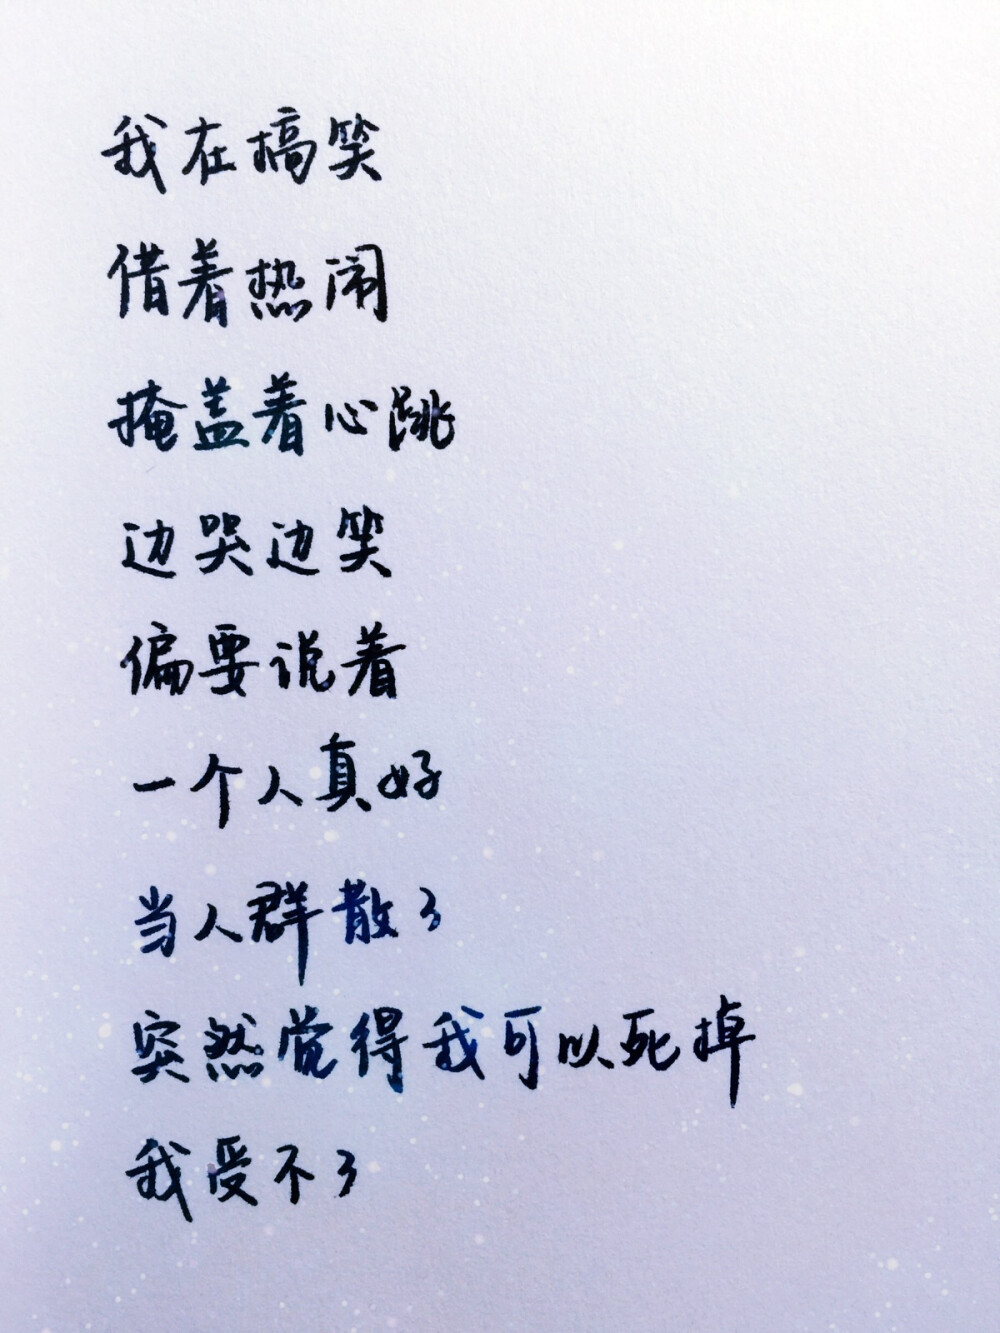 我在搞笑
借着热闹
掩盖着心跳
边哭边笑
偏要说着
一个人真好
当人群散了
突然觉得我可以死掉
我受不了